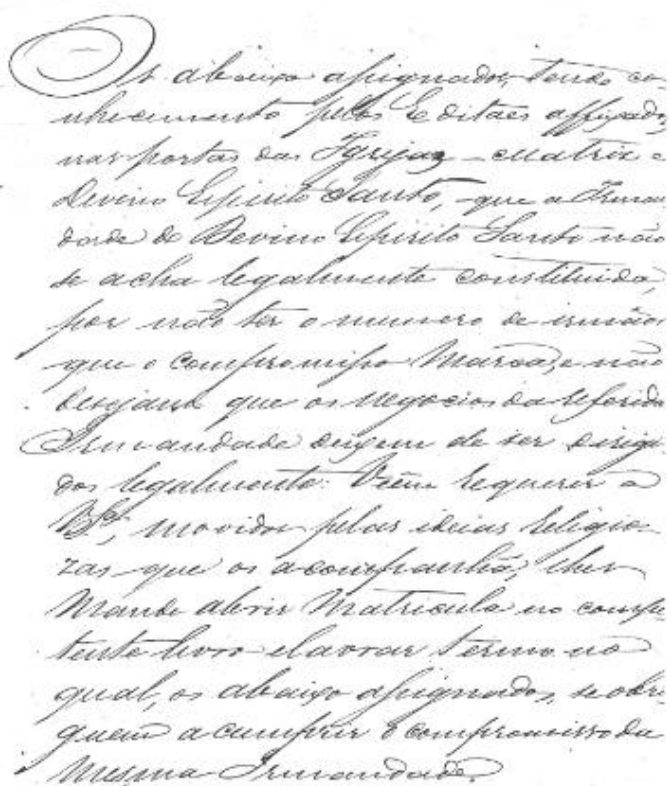 Os abaixo assignados, tendo co
nhecimento pelos Editaes affixados
nas portas das Igrejas - Matriz e
Devino Espirito Santo, que a Irman
dade do Devino Espirito Santo não
se acha legalmente constituida,
por não ter o numero de irmãos
que o compromisso marca, e não
desejand que os negocios da referida
Irmandade deixem de ser dirigi
dos legalmente. Vem requerer a
movidos pelas ideias religio
zas que os acompanhã, lhes
mande abrir matricula no compe
tente livro e lavrar termo no
qual, os abaixo assignados, se obri
guem a cumprir o compromisso da
mesma Irmandade